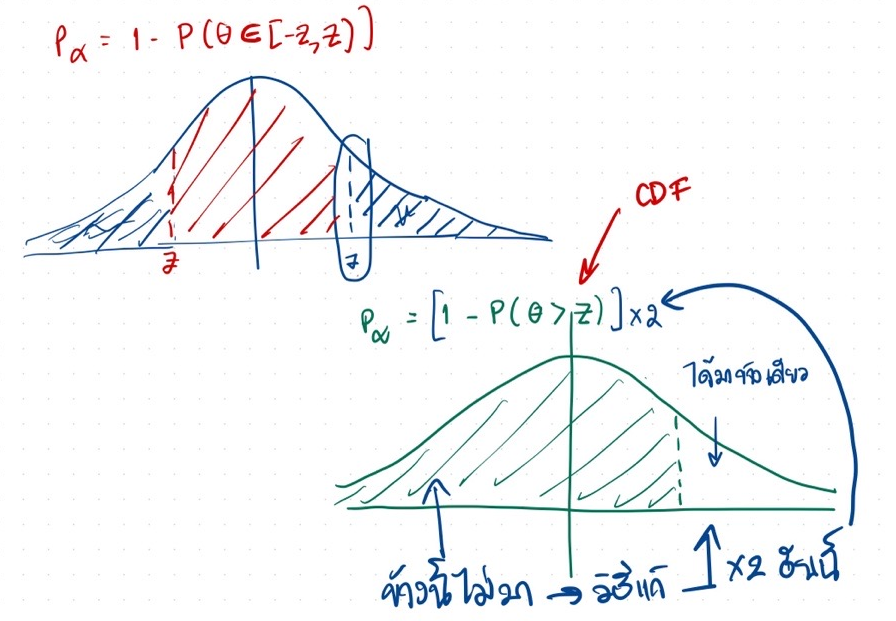 Pα = 1 - P(θ ∈ [-z, z)]
z
z
CDF
Pα = [1 - P(θ > z)] x2
ได้มาข้างเดียว
ข้างนี้ไม่มา → วิธีแก้
x2 อันนี้